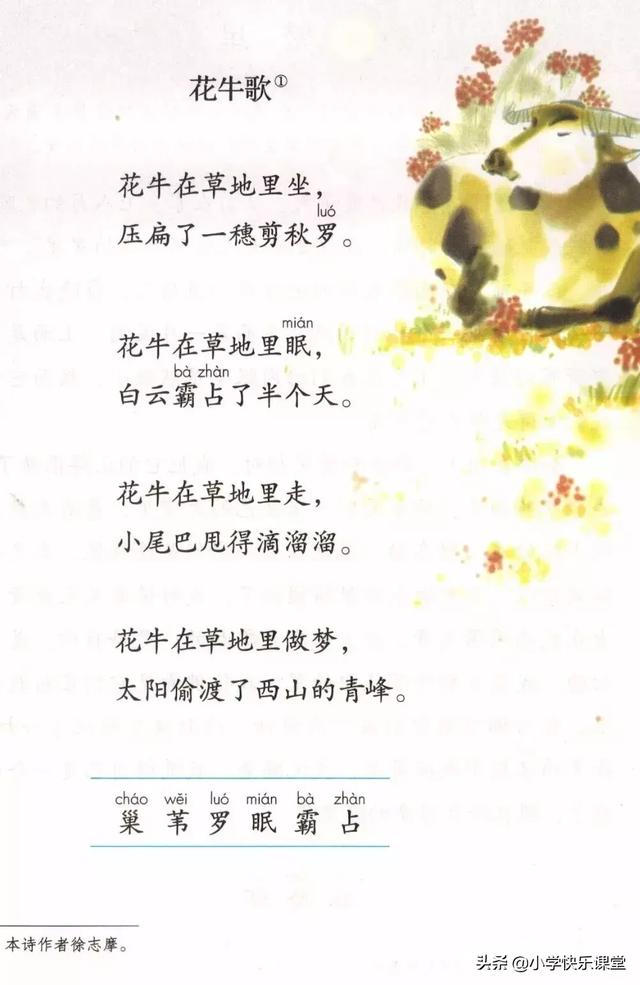 花牛歌①
花牛在草地里坐，
luó
压扁了一穗剪秋罗。
mián
花牛在草地里眠，
bà zhàn
白云霸占了半个天。
花牛在草地里走，
小尾巴甩得滴溜溜。
花牛在草地里做梦，
太阳偷渡了西山的青峰。
cháo wěi luó mián bà zhàn
巢 苇 罗 眠 霸 占
本诗作者徐志摩。
头条 @小学快乐课堂